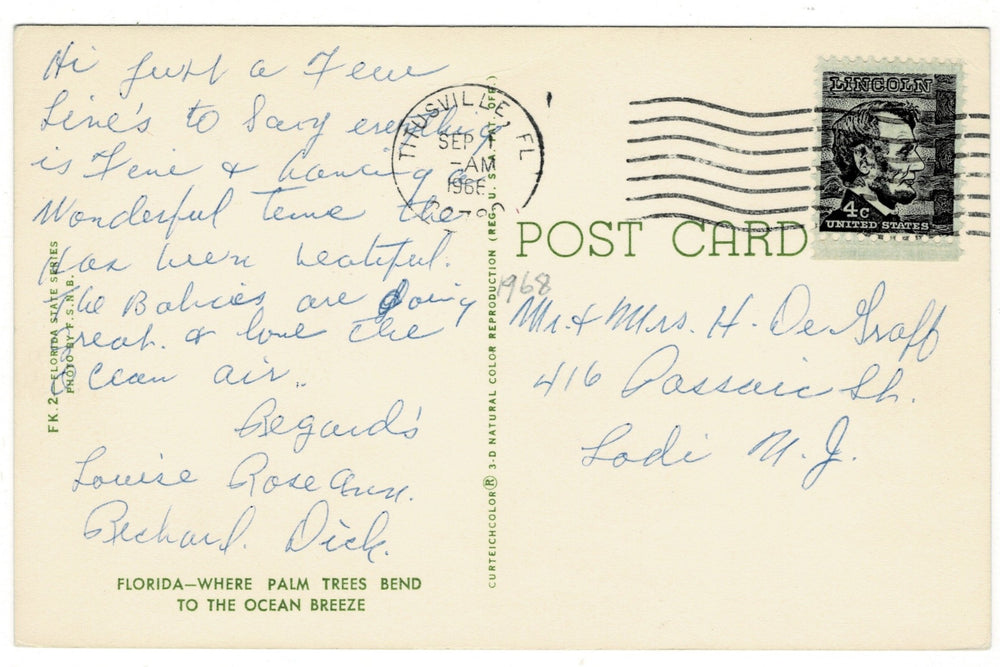 Hi just a Few
Line's to Say everything
is Fine & having a
Wonderful time the
has been beatiful.
The Babies are doing
great. & love the
Ocean air.
Regard's
Louise Rose Ann.
Richard. Dick.
FLORIDA—WHERE PALM TREES BEND
TO THE OCEAN BREEZE
FK.2—FLORIDA STATE SERIES
PHOTO BY F.S.N.B.
CURTEICHCOLOR® 3-D NATURAL COLOR REPRODUCTION (REG. U. S. PAT. OFF.)
TITUSVILLE, FL
SEP 1
-AM
196
LINCOLN
4c
UNITED STATES
POST CARD
1968
Mr. & Mrs. H. De Graff
416 Passaic St.
Lodi N.J.